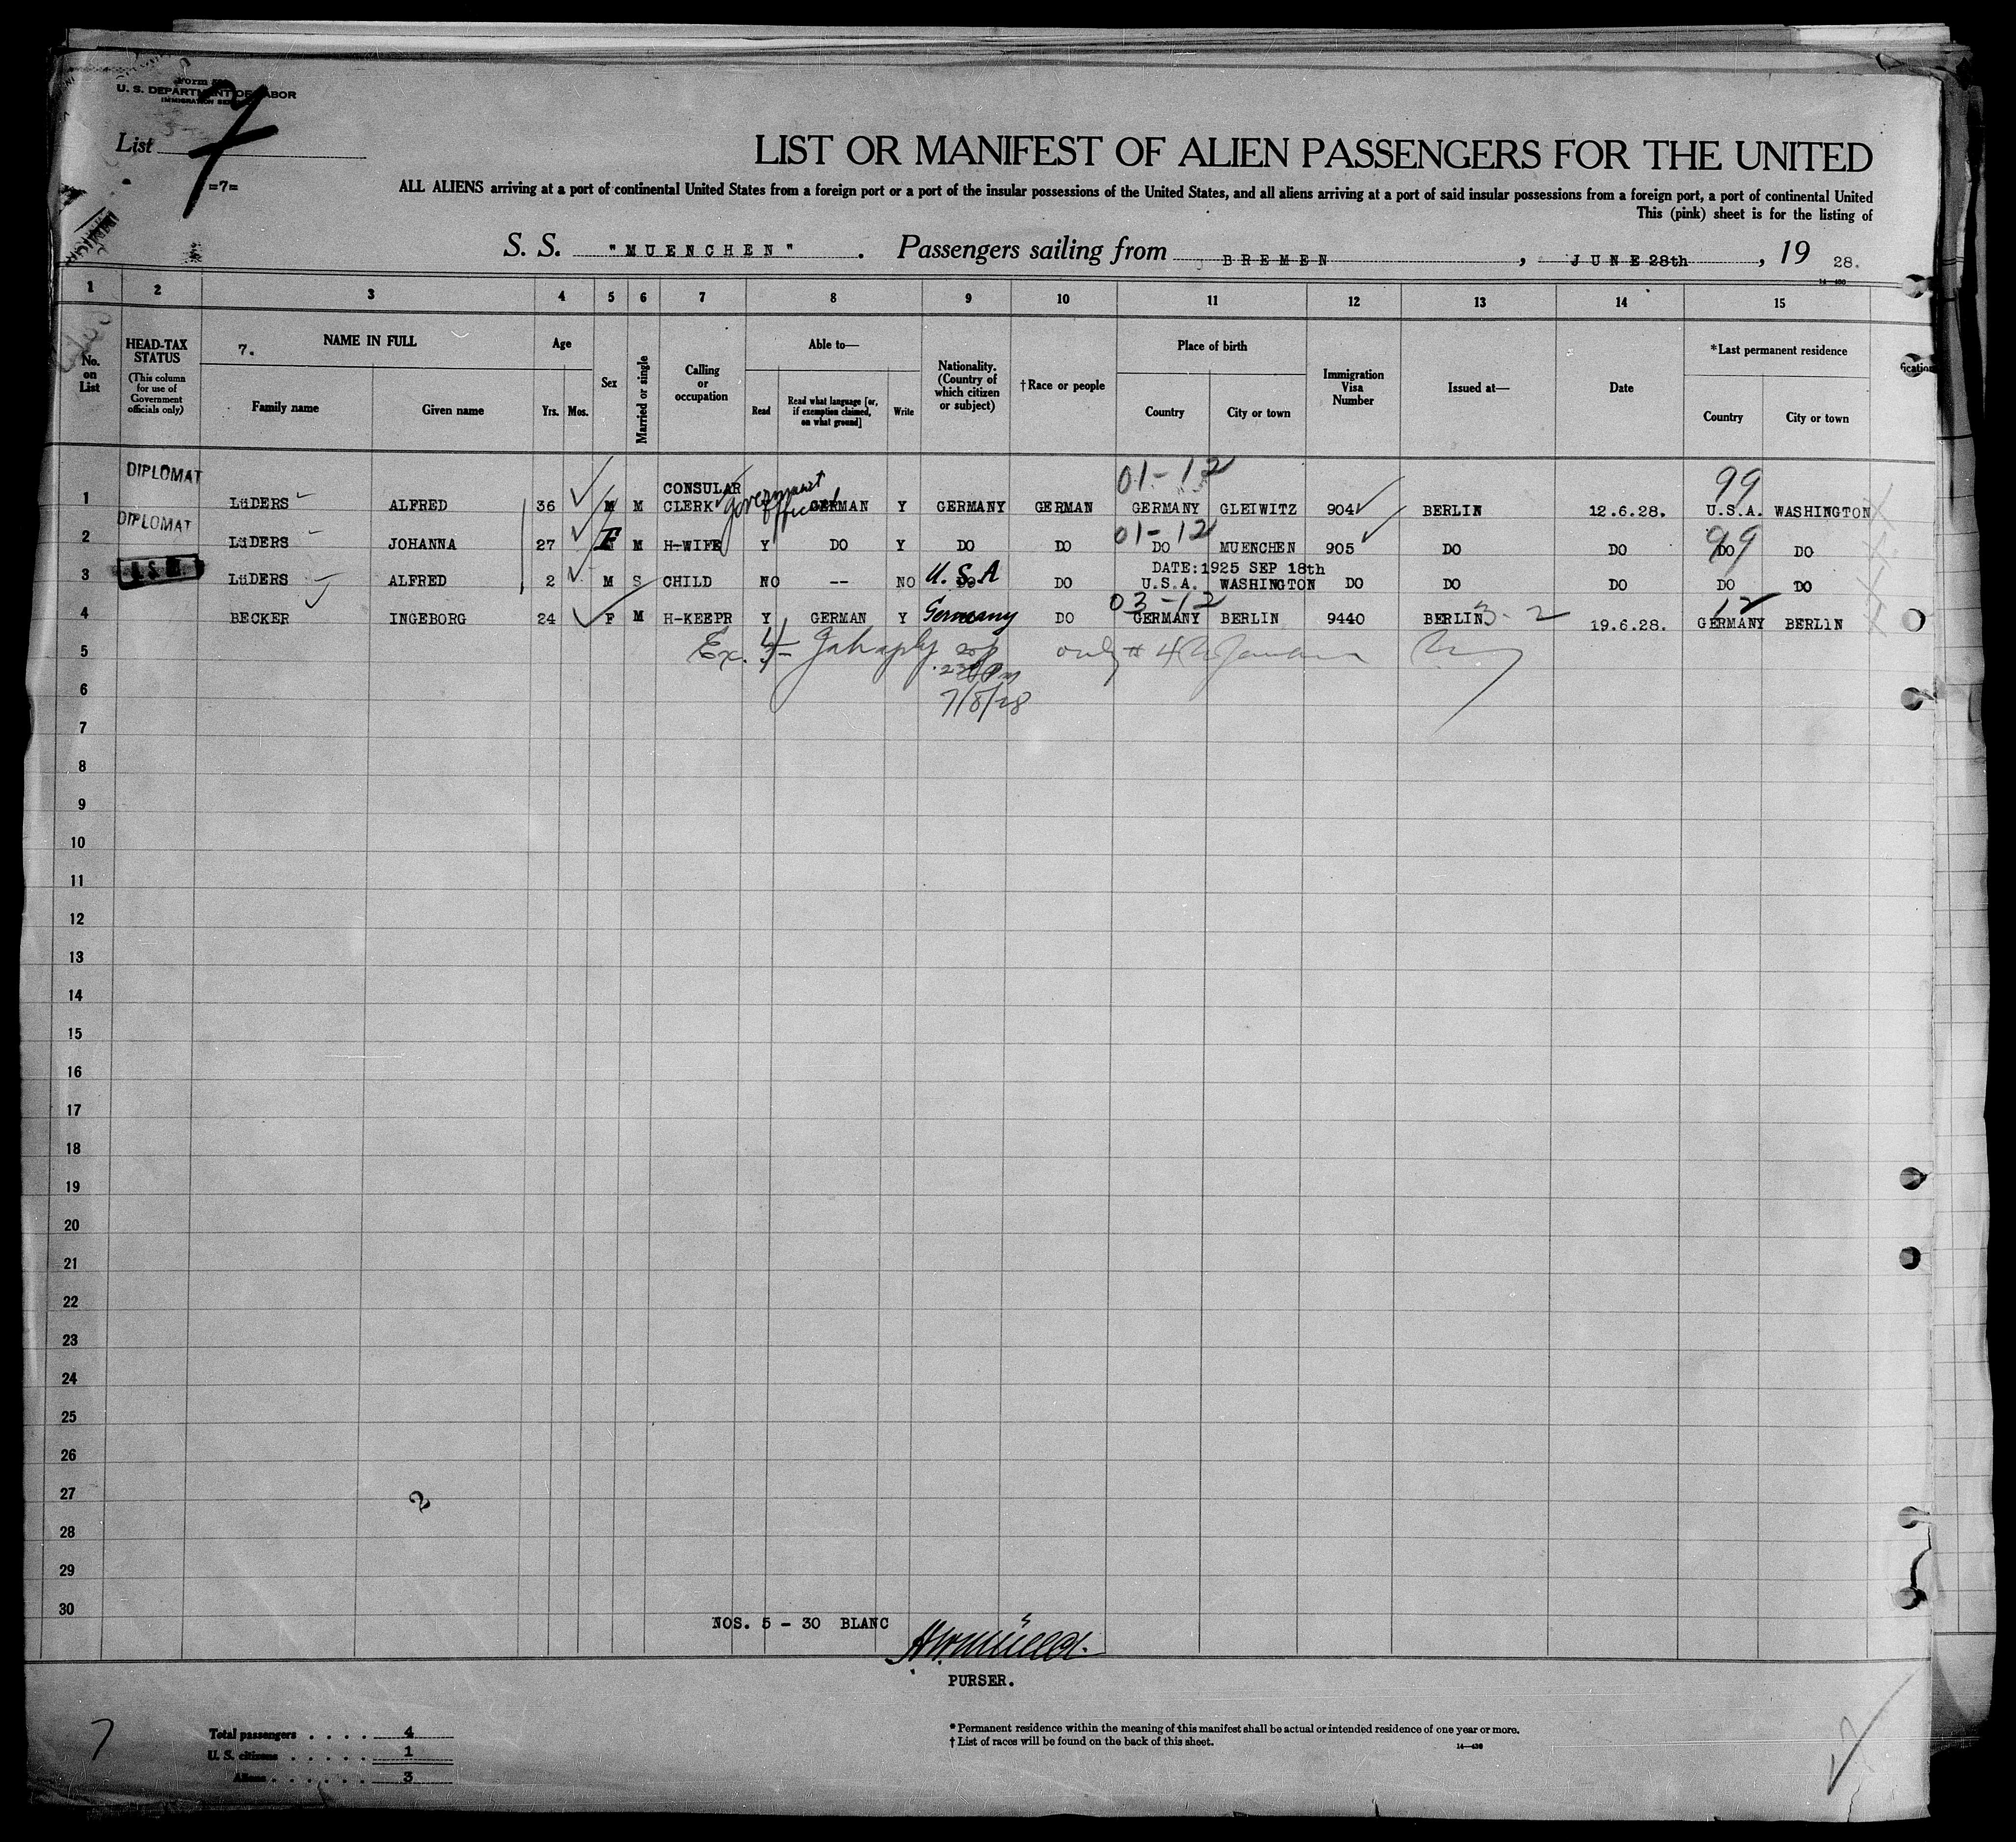 U. S. DEPARTMENT OF LABOR
IMMIGRATION SERVICE
List 7
=7=
LIST OR MANIFEST OF ALIEN PASSENGERS FOR THE UNITED
ALL ALIENS arriving at a port of continental United States from a foreign port or a port of the insular possessions of the United States, and all aliens arriving at a port of said insular possessions from a foreign port, a port of continental United
This (pink) sheet is for the listing of
S. S. "MUENCHEN". Passengers sailing from BREMEN, JUNE 28th, 19 28.
1 2 3 4 5 6 7 8 9 10 11 12 13 14 15
No. on List
HEAD-TAX STATUS
(This column for use of Government officials only)
7. NAME IN FULL
Family name Given name
Age
Yrs. Mos.
Sex
Married or single
Calling or occupation
Able to—
Read
Read what language [or, if exemption claimed, on what ground]
Write
Nationality. (Country of which citizen or subject)
†Race or people
Place of birth
Country City or town
Immigration Visa Number
Issued at—
Date
*Last permanent residence
Country City or town
DIPLOMAT 01-12 99
1 LüDERS ALFRED 36 M M CONSULAR CLERK Government official GERMAN Y GERMANY GERMAN GERMANY GLEIWITZ 904 BERLIN 12.6.28. U.S.A. WASHINGTON
DIPLOMAT 01-12 99
2 LüDERS JOHANNA 27 F M H-WIFE Y DO Y DO DO DO MUENCHEN 905 DO DO DO DO
DATE:1925 SEP 18th
3 U.S.B. LüDERS ALFRED 2 M S CHILD NO -- NO U.S.A DO U.S.A. WASHINGTON DO DO DO DO DO
03-12 12
4 BECKER INGEBORG 24 F M H-KEEPR Y GERMAN Y Germany DO GERMANY BERLIN 9440 BERLIN 3-2 19.6.28. GERMANY BERLIN
5 Ex. 4 only # 4
6
7/8/28
7
8
9
10
11
12
13
14
15
16
17
18
19
20
21
22
23
24
25
26
27
2
28
29
30
NOS. 5 - 30 BLANC
PURSER.
7
Total passengers . . . . 4
U. S. citizens . . . . . 1
Aliens . . . . . . 3
*Permanent residence within the meaning of this manifest shall be actual or intended residence of one year or more.
†List of races will be found on the back of this sheet.